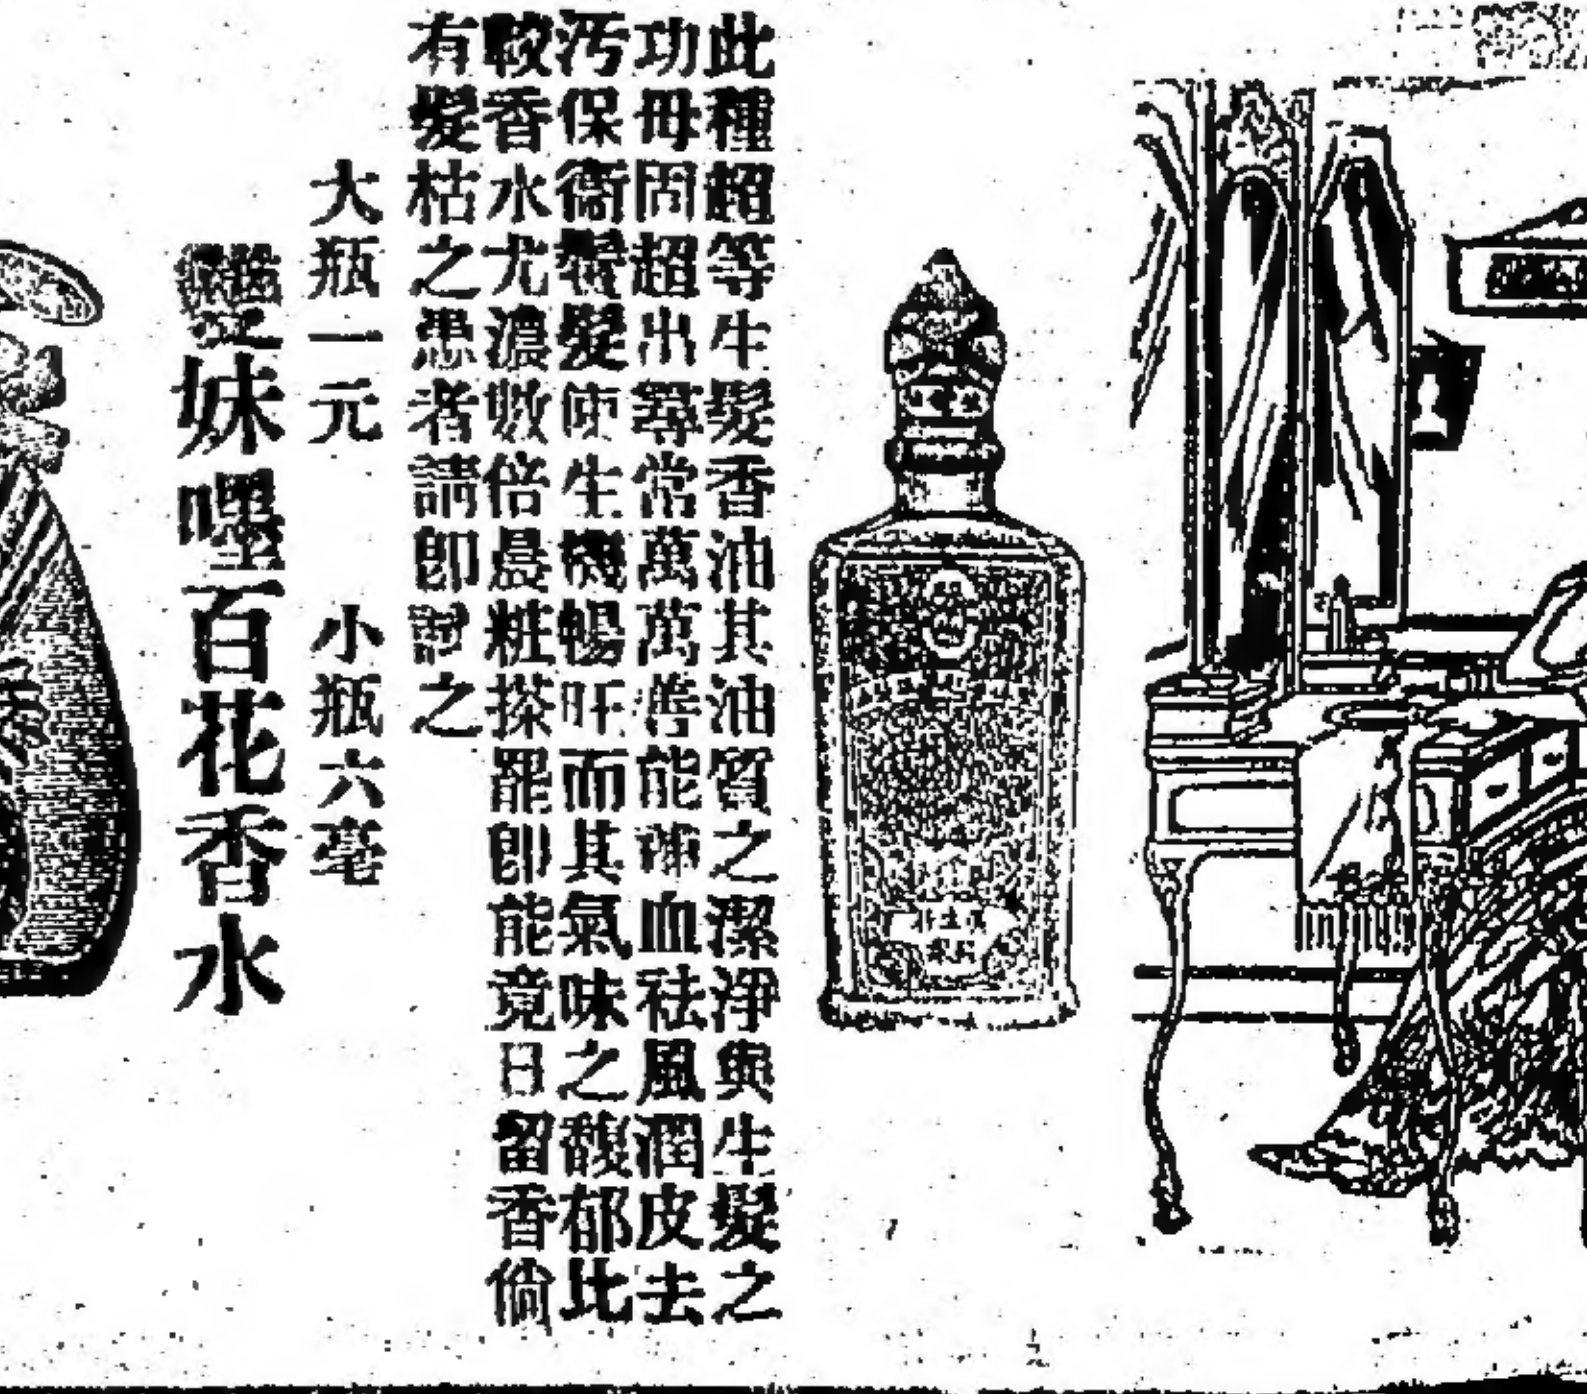 此種超等生髮香油其油質之潔淨與生髮之
功毋問超出尋常萬萬普能補血祛風潤皮去
污保衞鬚髮使生機暢旺而其氣味之馥郁比
較香水尤濃數倍晨粧搽罷即能竟日留香倘
有髮枯之患者請即試之
大瓶一元 小瓶六毫
雙妹嚜百花香水